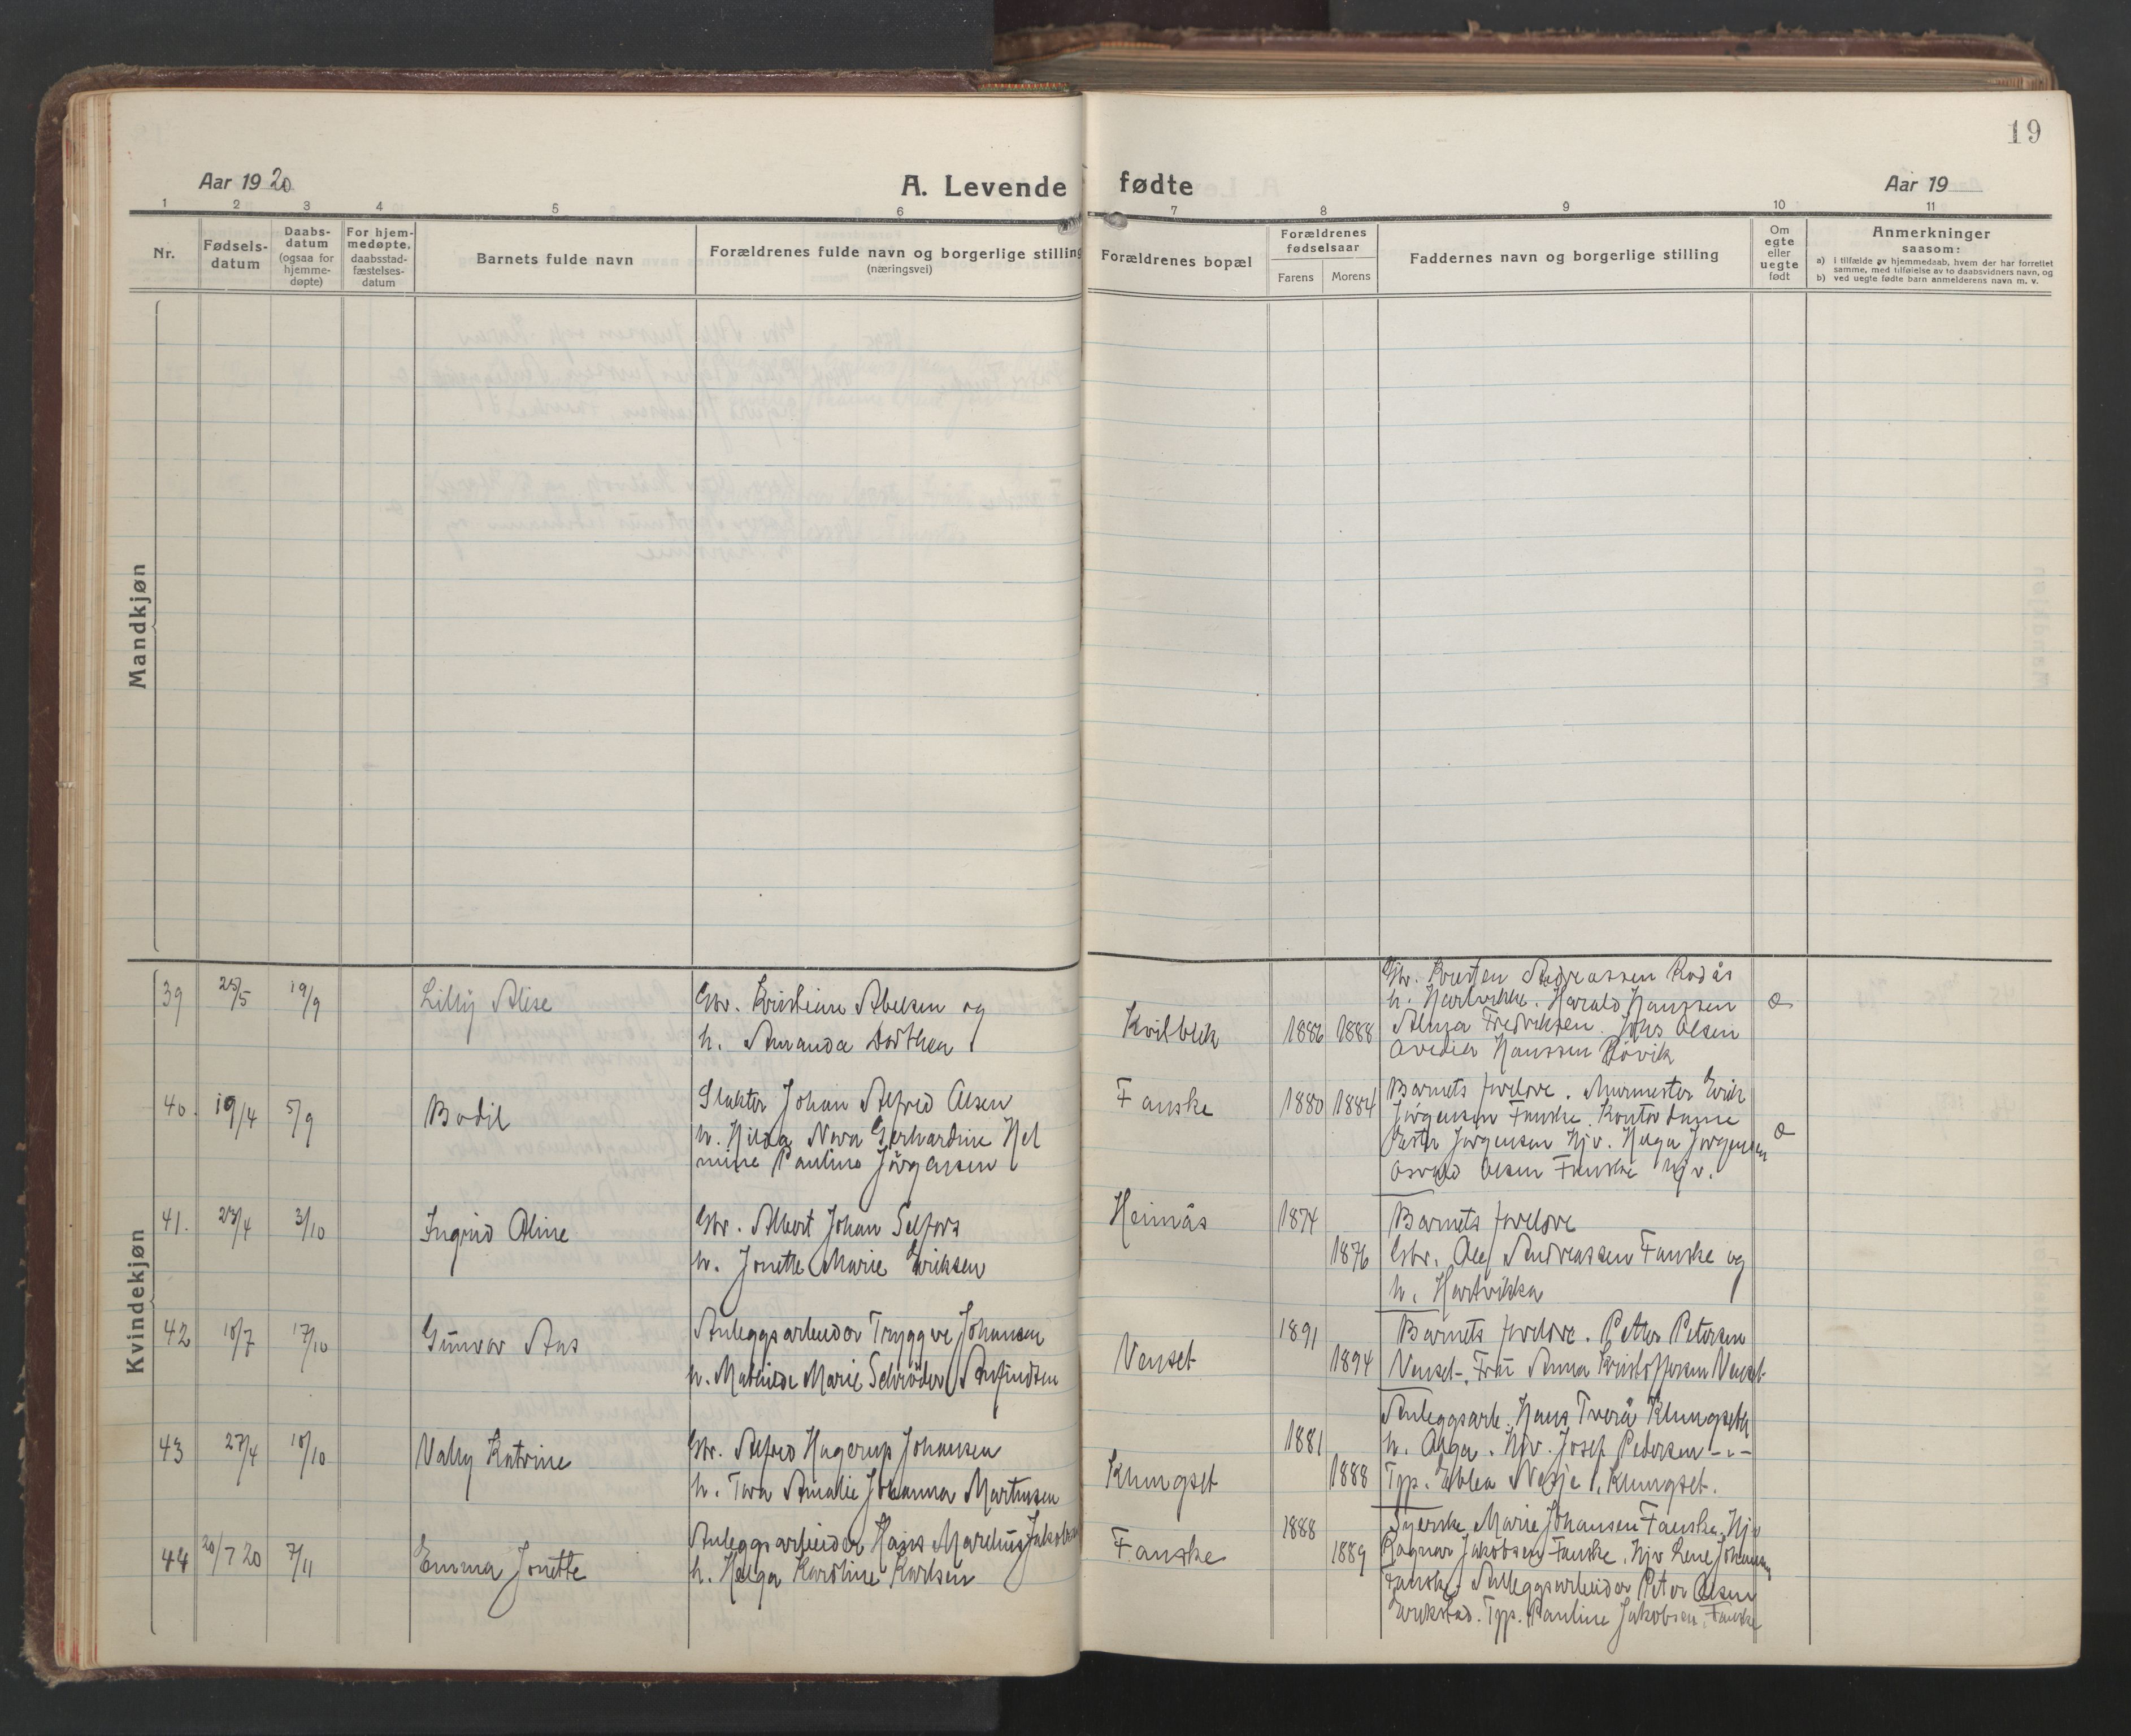 19
Aar 1920
A. Levende fødte
Aar 19
1 2 3 4 5 6 7 8 9 10 11
Nr.
Fødsels-
datum
Daabs-
datum
(ogsaa for
hjemme-
døpte)
For hjem-
medøpte,
daabsstad-
fæstelses-
datum
Barnets fulde navn
Forældrenes fulde navn og borgerlige stilling
(næringsvei)
Forældrenes bopæl
Forældrenes
fødselsaar
Farens Morens
Faddernes navn og borgerlige stilling
Om
egte
eller
uegte
født
Anmerkninger
saasom:
a) i tilfælde av hjemmedaab, hvem der har forrettet
samme, med tilføielse av to daabsvidners navn, og
b) ved uegte fødte barn anmelderens navn m. v.
Mandkjøn
Kvindekjøn
39 25/5 19/9 Lilly Alise
Gbr. Kristian Abelsen og
h. Amanda Dorthea
Kvilblik 1886 1888
Gbr. Kristen Andreassen Rodås
h. Hartvikke. Harald Hanssen
Fredriksen. Johs Olsen
Hanssen Røvik
40. 19/4 5/9 Bodil
Slakter Johan Alfred Olsen
h. Hilda Nora Gerhardine Hel
mine Pauline Jörgensen
Fauske 1880 1884
Barnets forelore. Murmester Erik
Jörgensen Fauske. Kontordame
Ester Jørgensen Hjv. Helga Jørgensen
Osvald Olsen Fauske Hjv.
41. 23/4 3/10 Ingrid Oline
Gbr. Albert Johan Selfors
h. Jonette Marie Eriksen
Heimås 1874
1876
Barnets forelore
Gbr. Ole Andreassen Fauske og
h. Hartvikka
42 18/7 17/10 Gunvor Aas
Anleggsarbeider Tryggve Johansen
h. Mathilde Marie Schrøder Arnfindsen
Venset 1891
1894
Barnets forelore. Petter Petersen
Venset. Fru Anna Kristoffersen Venset.
43 27/4 10/10 Vally Katrine
Gbr. Alfred Hagerup Johansen
h. Tora Amalie Johanna Martinsen
Klungset 1881
1888
Anleggsarb. Hans Tverå Klungseth
h. Olga. Hjv. Josef Pedersen -„-
Tpp. Ebba Nesje, Klungset.
44 20/7 20 7/11 Emma Jonette
Anleggsarbeider Hans Marelius Jakobsen
h. Helga Karoline Karlsen
Fauske 1888
1889
Syerske Marie Johansen Fauske. Hjv
Ragnar Jakobsen Fauske. Hjv Lene Johansen
Fauske. Anleggsarbeider Peter Olsen
Erikstad. Tpp. Pauline Jakobsen Fauske